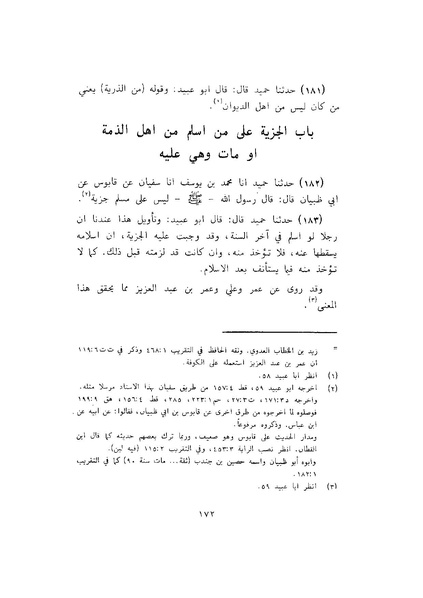 (١٨١) حدثنا حميد قال: قال ابو عبيد: وقوله (من الذرية) يعني
من كان ليس من اهل الديوان(١).
باب الجزية على من اسلم من اهل الذمة
او مات وهي عليه
(١٨٢) حدثنا حميد انا محمد بن يوسف انا سفيان عن قابوس عن
ابي ظبيان قال: قال رسول الله - ﷺ - ليس على مسلم جزية(٢).
(١٨٣) حدثنا حميد قال: قال ابو عبيد: وتأويل هذا عندنا ان
رجلا لو اسلم في آخر السنة، وقد وجبت عليه الجزية، ان اسلامه
يسقطها عنه، فلا تؤخذ منه، وان كانت قد لزمته قبل ذلك. كما لا
تؤخذ منه فيا يستأنف بعد الاسلام.
وقد روى عن عمر وعلي وعمر بن عبد العزيز مما يحقق هذا
المعنى(٣).
* زيد بن الخطاب العدوي. وثقه الحافظ في التقريب ٤٦٨:١ وذكر في ت ت ١١٩:٦
ان عمر بن عبد العزيز استعمله على الكوفة.
(١) انظر ابا عبيد ٥٨.
(٢) اخرجه ابو عبيد ٥٩، قط ١٥٧:٤ من طريق سفيان بهذا الاسناد مرسلا مثله.
واخرجه د ١٧١:٣، ت ٢٧:٣، حم ٢٢٣:١، ٢٨٥، قط ١٥٦:٤، هق ١٩٩:٩
فوصلوه لما اخرجوه من طرق اخرى عن قابوس بن ابي ظبيان، فقالوا: عن ابيه عن
ابن عباس. وذكروه مرفوعاً.
ومدار الحديث على قابوس وهو ضعيف، وربما ترك بعضهم حديثه كما قال ابن
القطان. انظر نصب الراية ٤٥٣:٣، وفي التقريب ١١٥:٢ (فيه لين).
وابوه أبو ظبيان واسمه حصين بن جندب (ثقة... مات سنة ٩٠) كما في التقريب
١٨٢:١.
(٣) انظر ابا عبيد ٥٩.
١٧٢